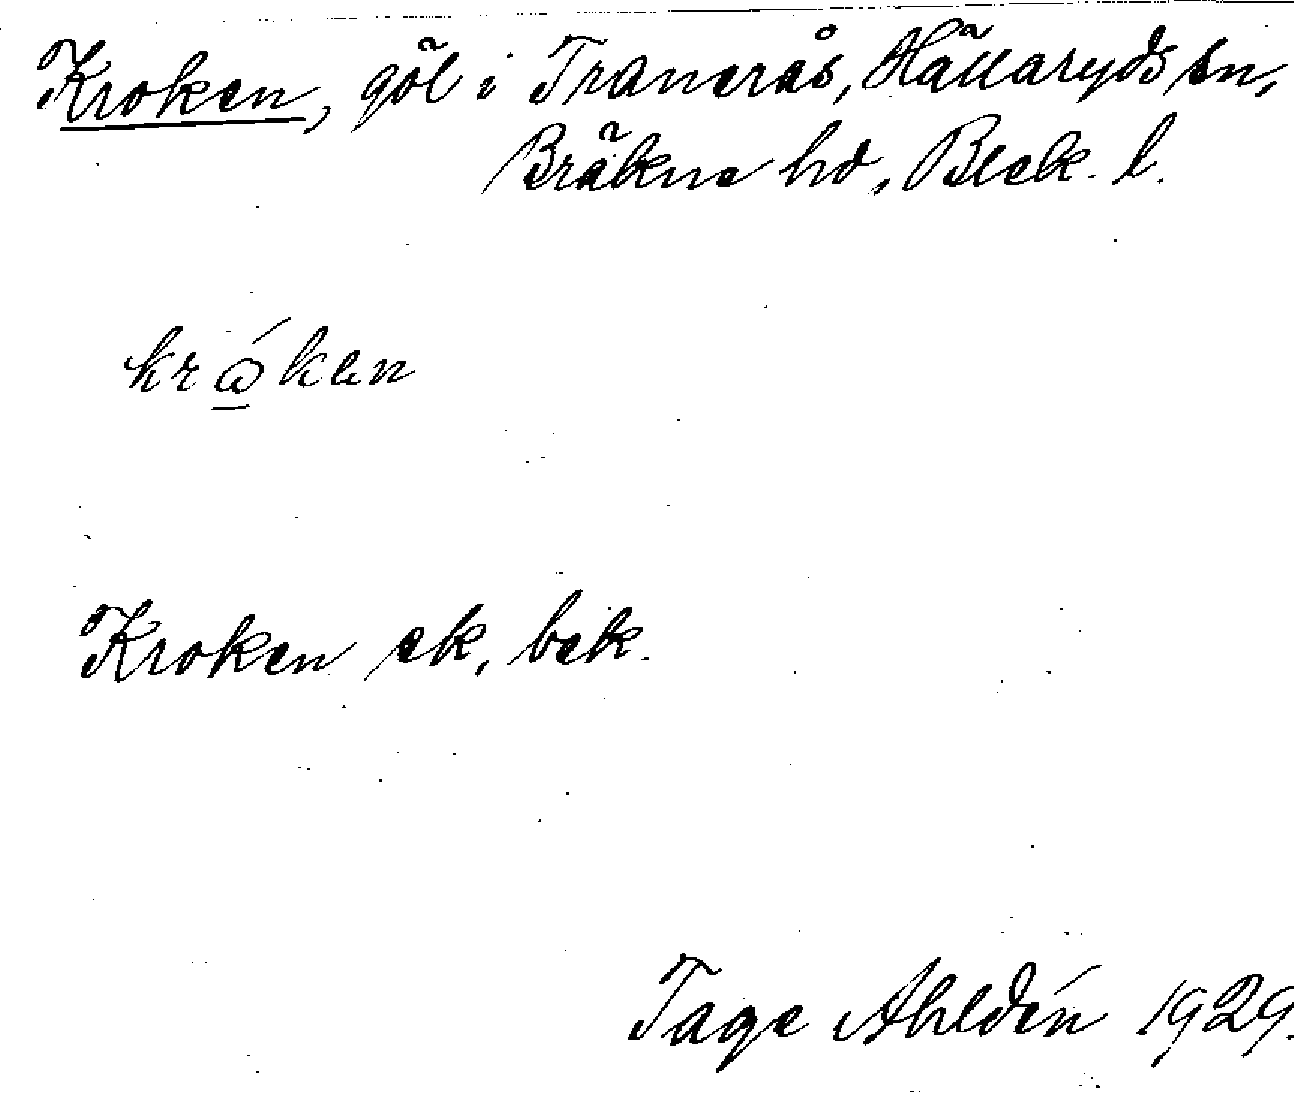 Kroken, göl i Tranerås, Hällaryds sn,
Bräkne hd, Blek. l.
krώ̲ken
Kroken ek, bek.
Tage Ahldén 1929.